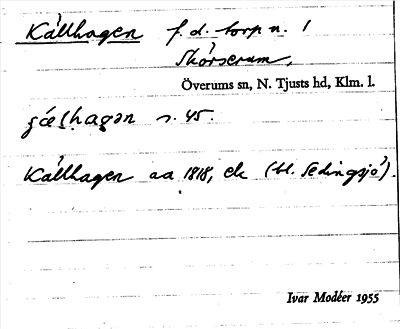 Källhagen f. d. torp n. 1
Skörserum,
Överums sn, N. Tjusts hd, Klm. l.
s. 45.
Källhagen aa 1818, ek (bl. Sedingsjö).
Ivar Modéer 1955